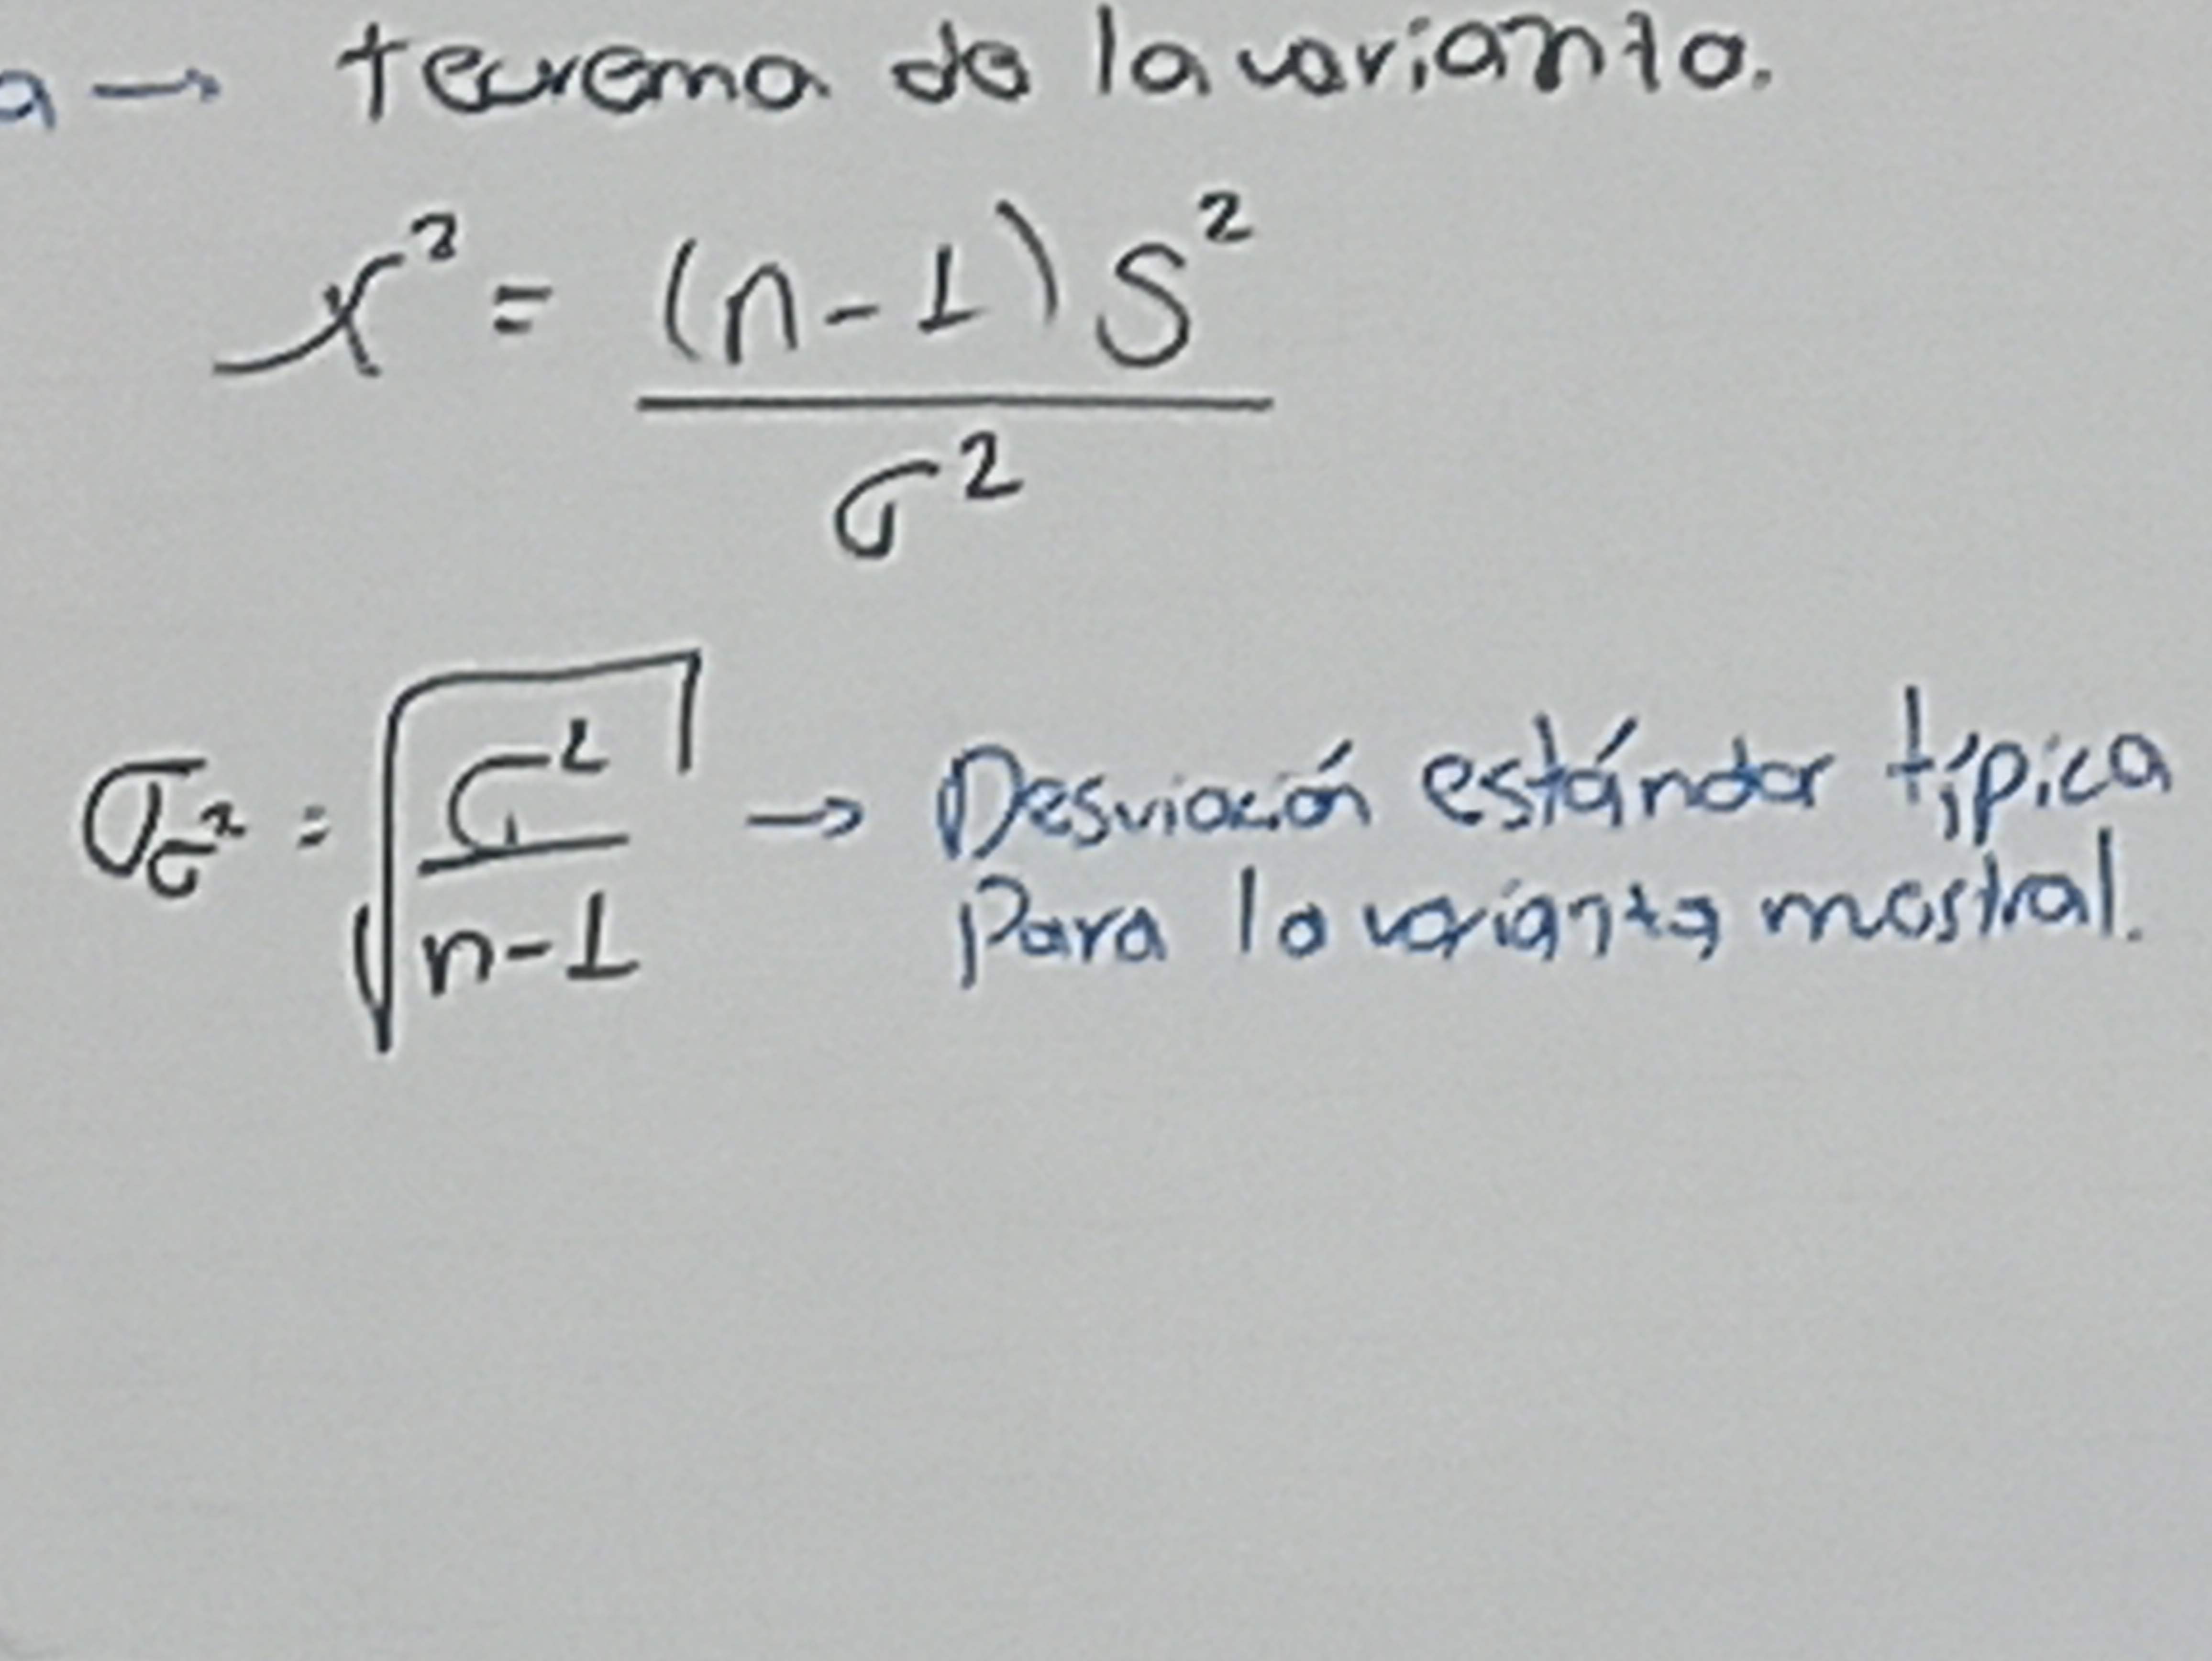 a → teorema de la varianta.
x² = (n-1) S² / σ²
σ_σ² = √(σ² / n-1) → Desviación estándar típica
para la varianta mostral.